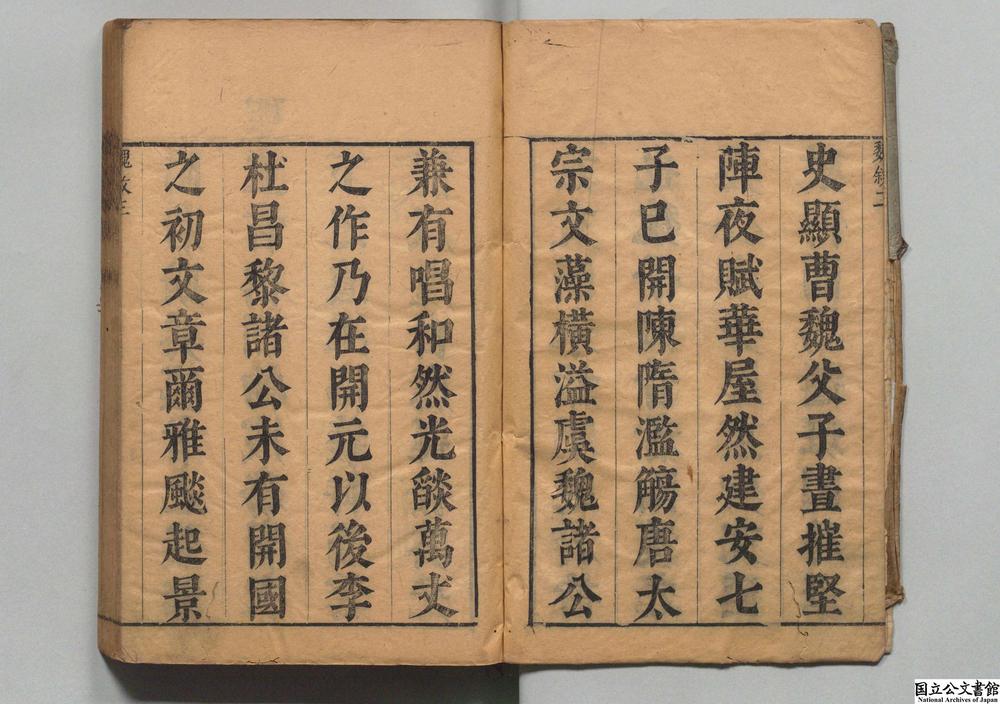 魏敘二
史顯曹魏父子晝摧堅
陣夜賦華屋然建安七
子已開陳隋濫觴唐太
宗文藻橫溢虞魏諸公
兼有唱和然光燄萬丈
之作乃在開元以後李
杜昌黎諸公未有開國
之初文章爾雅颷起景
魏敘三
国立公文書館
National Archives of Japan